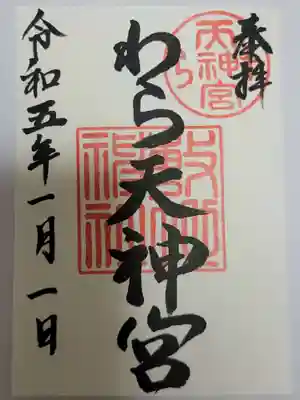 奉拝
わら天神宮
令和五年一月一日
わら
天神宮
敷地神社